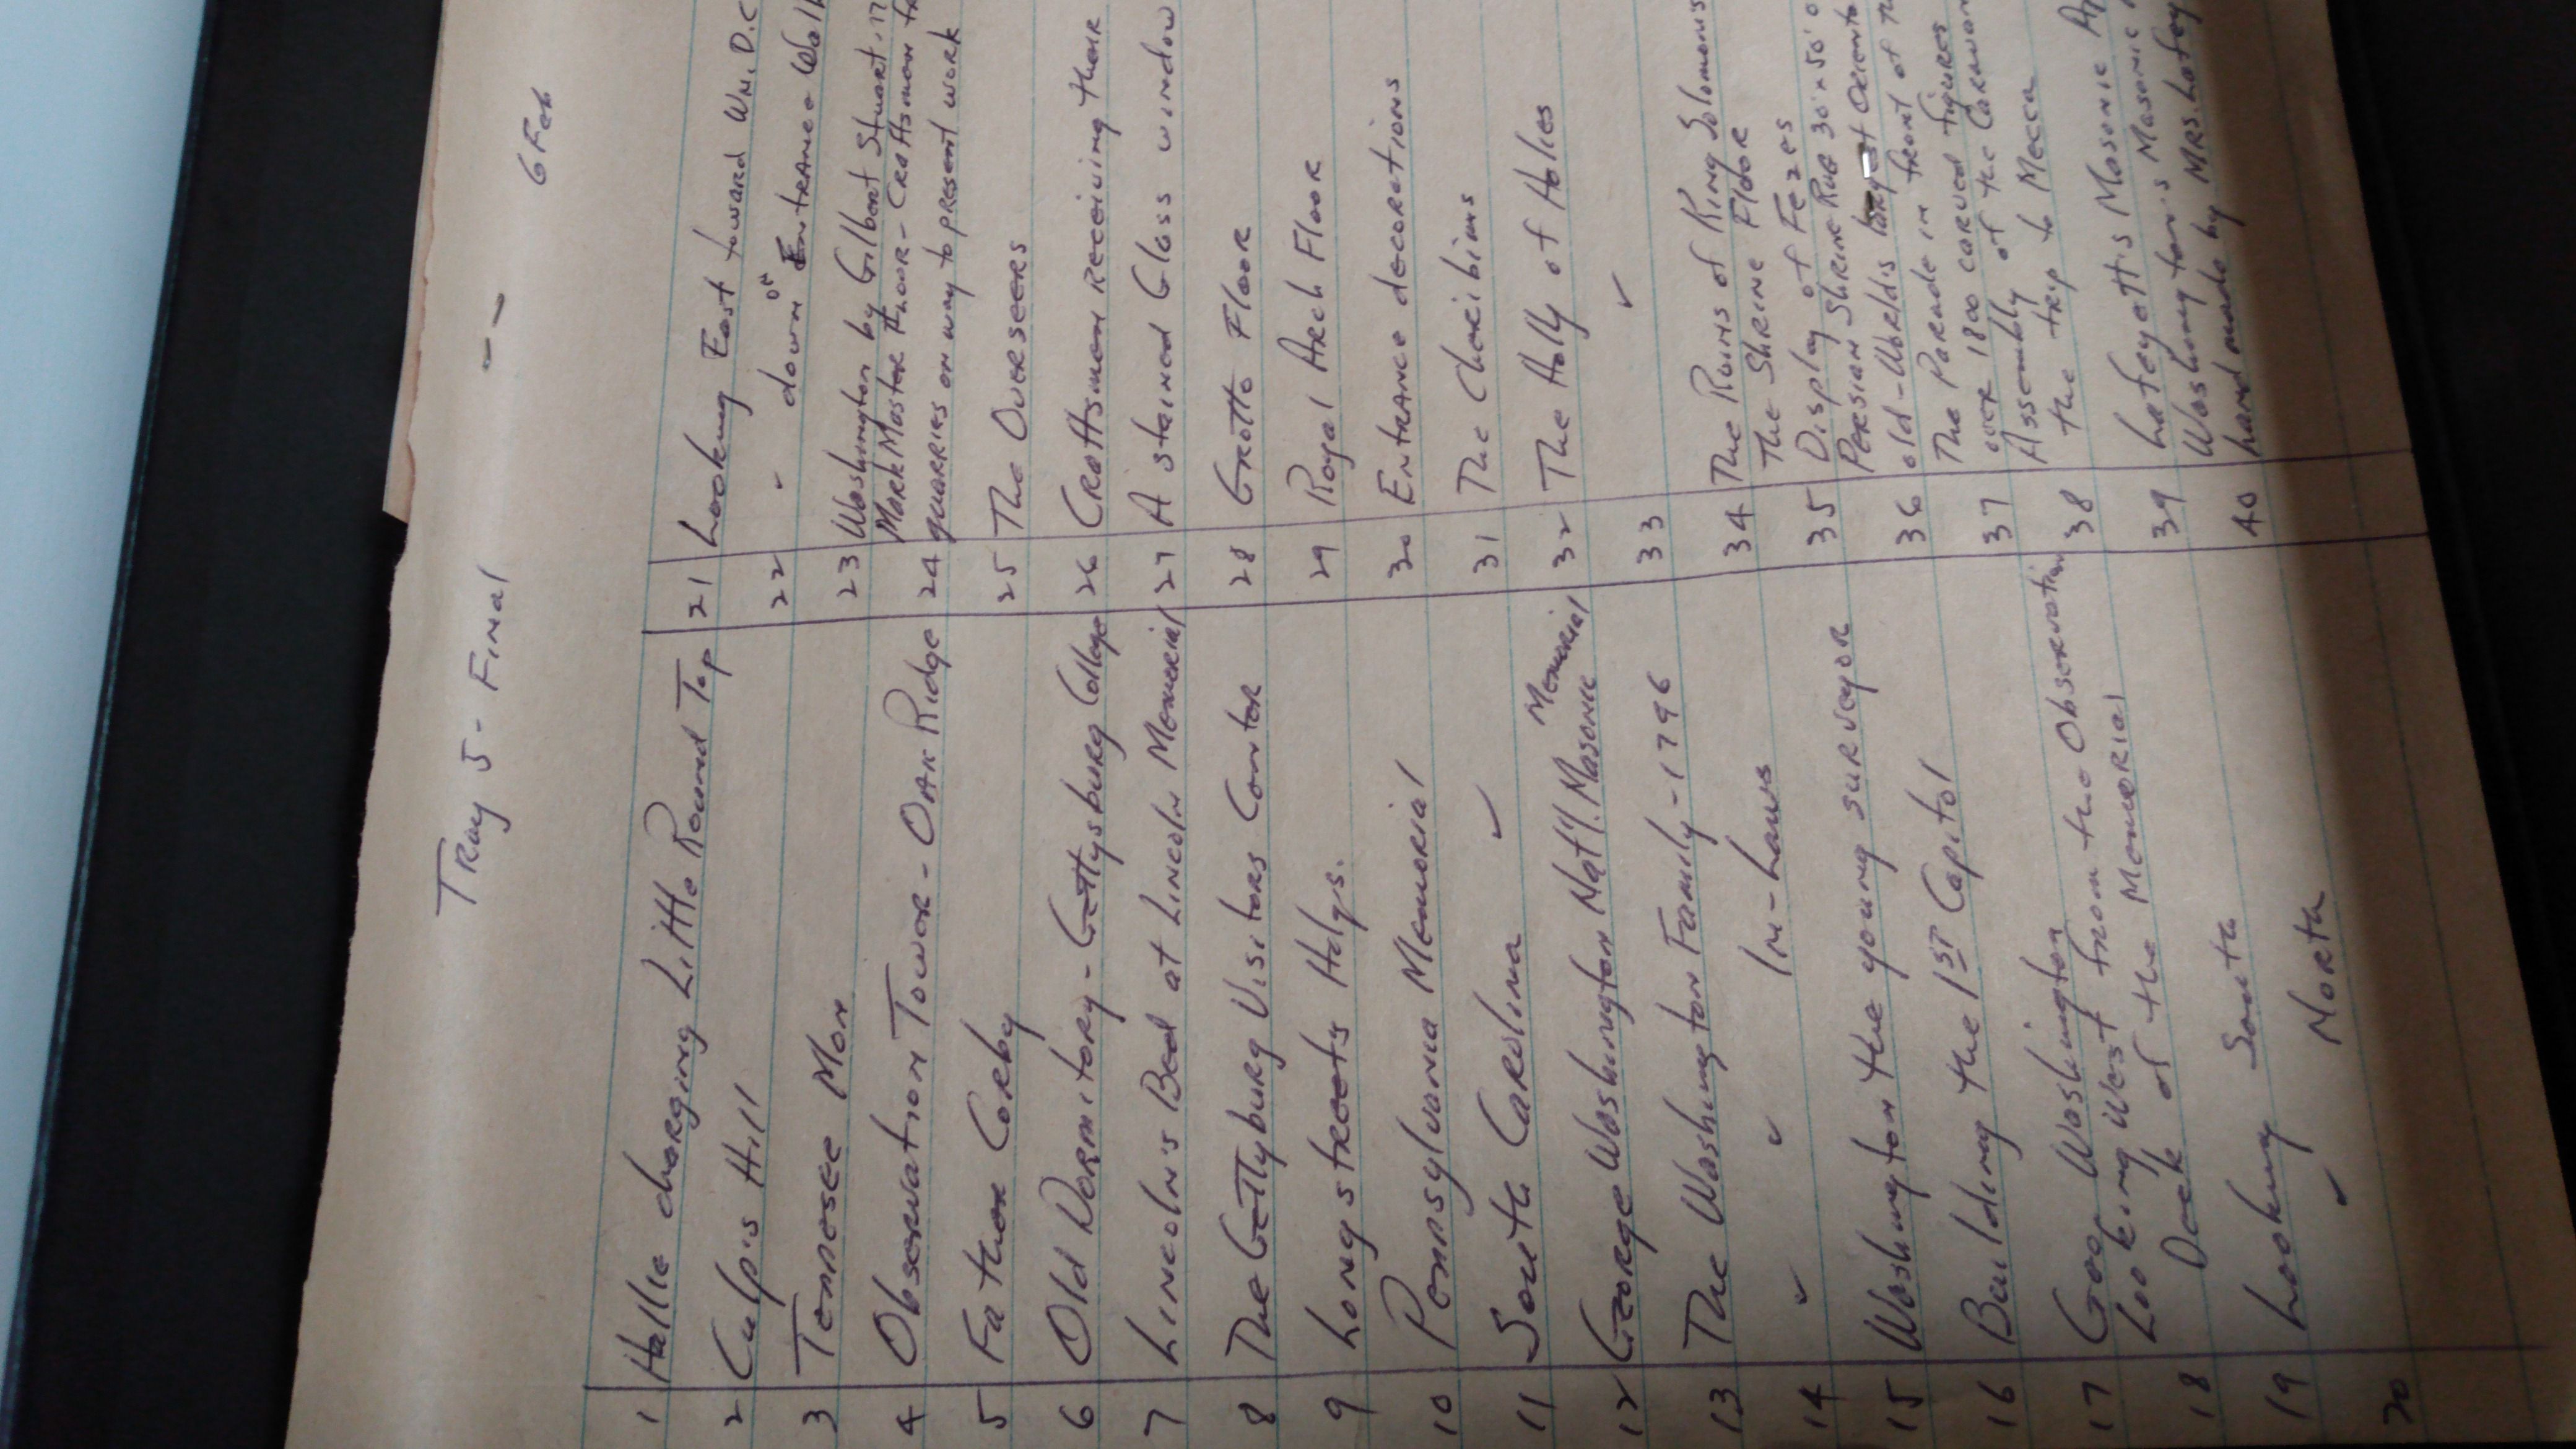 Tray 5 - Final
6 Feb
1 Hallie charging Little Round Top
2 Culp's Hill
3 Tennesee Mon
4 Observation Tower - Oak Ridge
5 Father Corby
6 Old Dormitory - Gettysburg College
7 Lincoln's Bed at Lincoln Memorial
8 The Gettyburg Visitors Center
9 Longstreets Hdqs.
10 Pennsylvania Memorial
11 South Carolina ✓
12 George Washington Nat'l. Masonic Memorial
13 The Washington Family - 1796
14 ✓ ✓ In-Laws
15 Washington the young surveyor
16 Building the 1st Capitol
17 Geo Washington
18 Looking West from the Observation
Deck of the Memorial
19 Looking South
20 ✓ North
21 Looking East toward WN. D.C
22 ✓ down on Entrance Walk
23 Washington by Gilbert Stuart
24 Mark Master Floor - Craftsmen
quarries on way to present work
25 The Overseers
26 Craftsmen receiving their
27 A stained Glass window
28 Grotto Floor
29 Royal Arch Floor
30 Entrance decorations
31 The Cheribims
32 The Holly of Holies
33 ✓
34 The Ruins of King Solomons
The Shrine Floor
35 Display of Fezes
36 Persian Shrine Rug 30'x50'
old - Worlds largest
37 The Parade in front of
over 1800 carved figures
38 Assembly of the Caravan
the trip to Mecca
39 Lafeyett's Masonic
40 Washington's Masonic
hand made by Mrs. Lafey